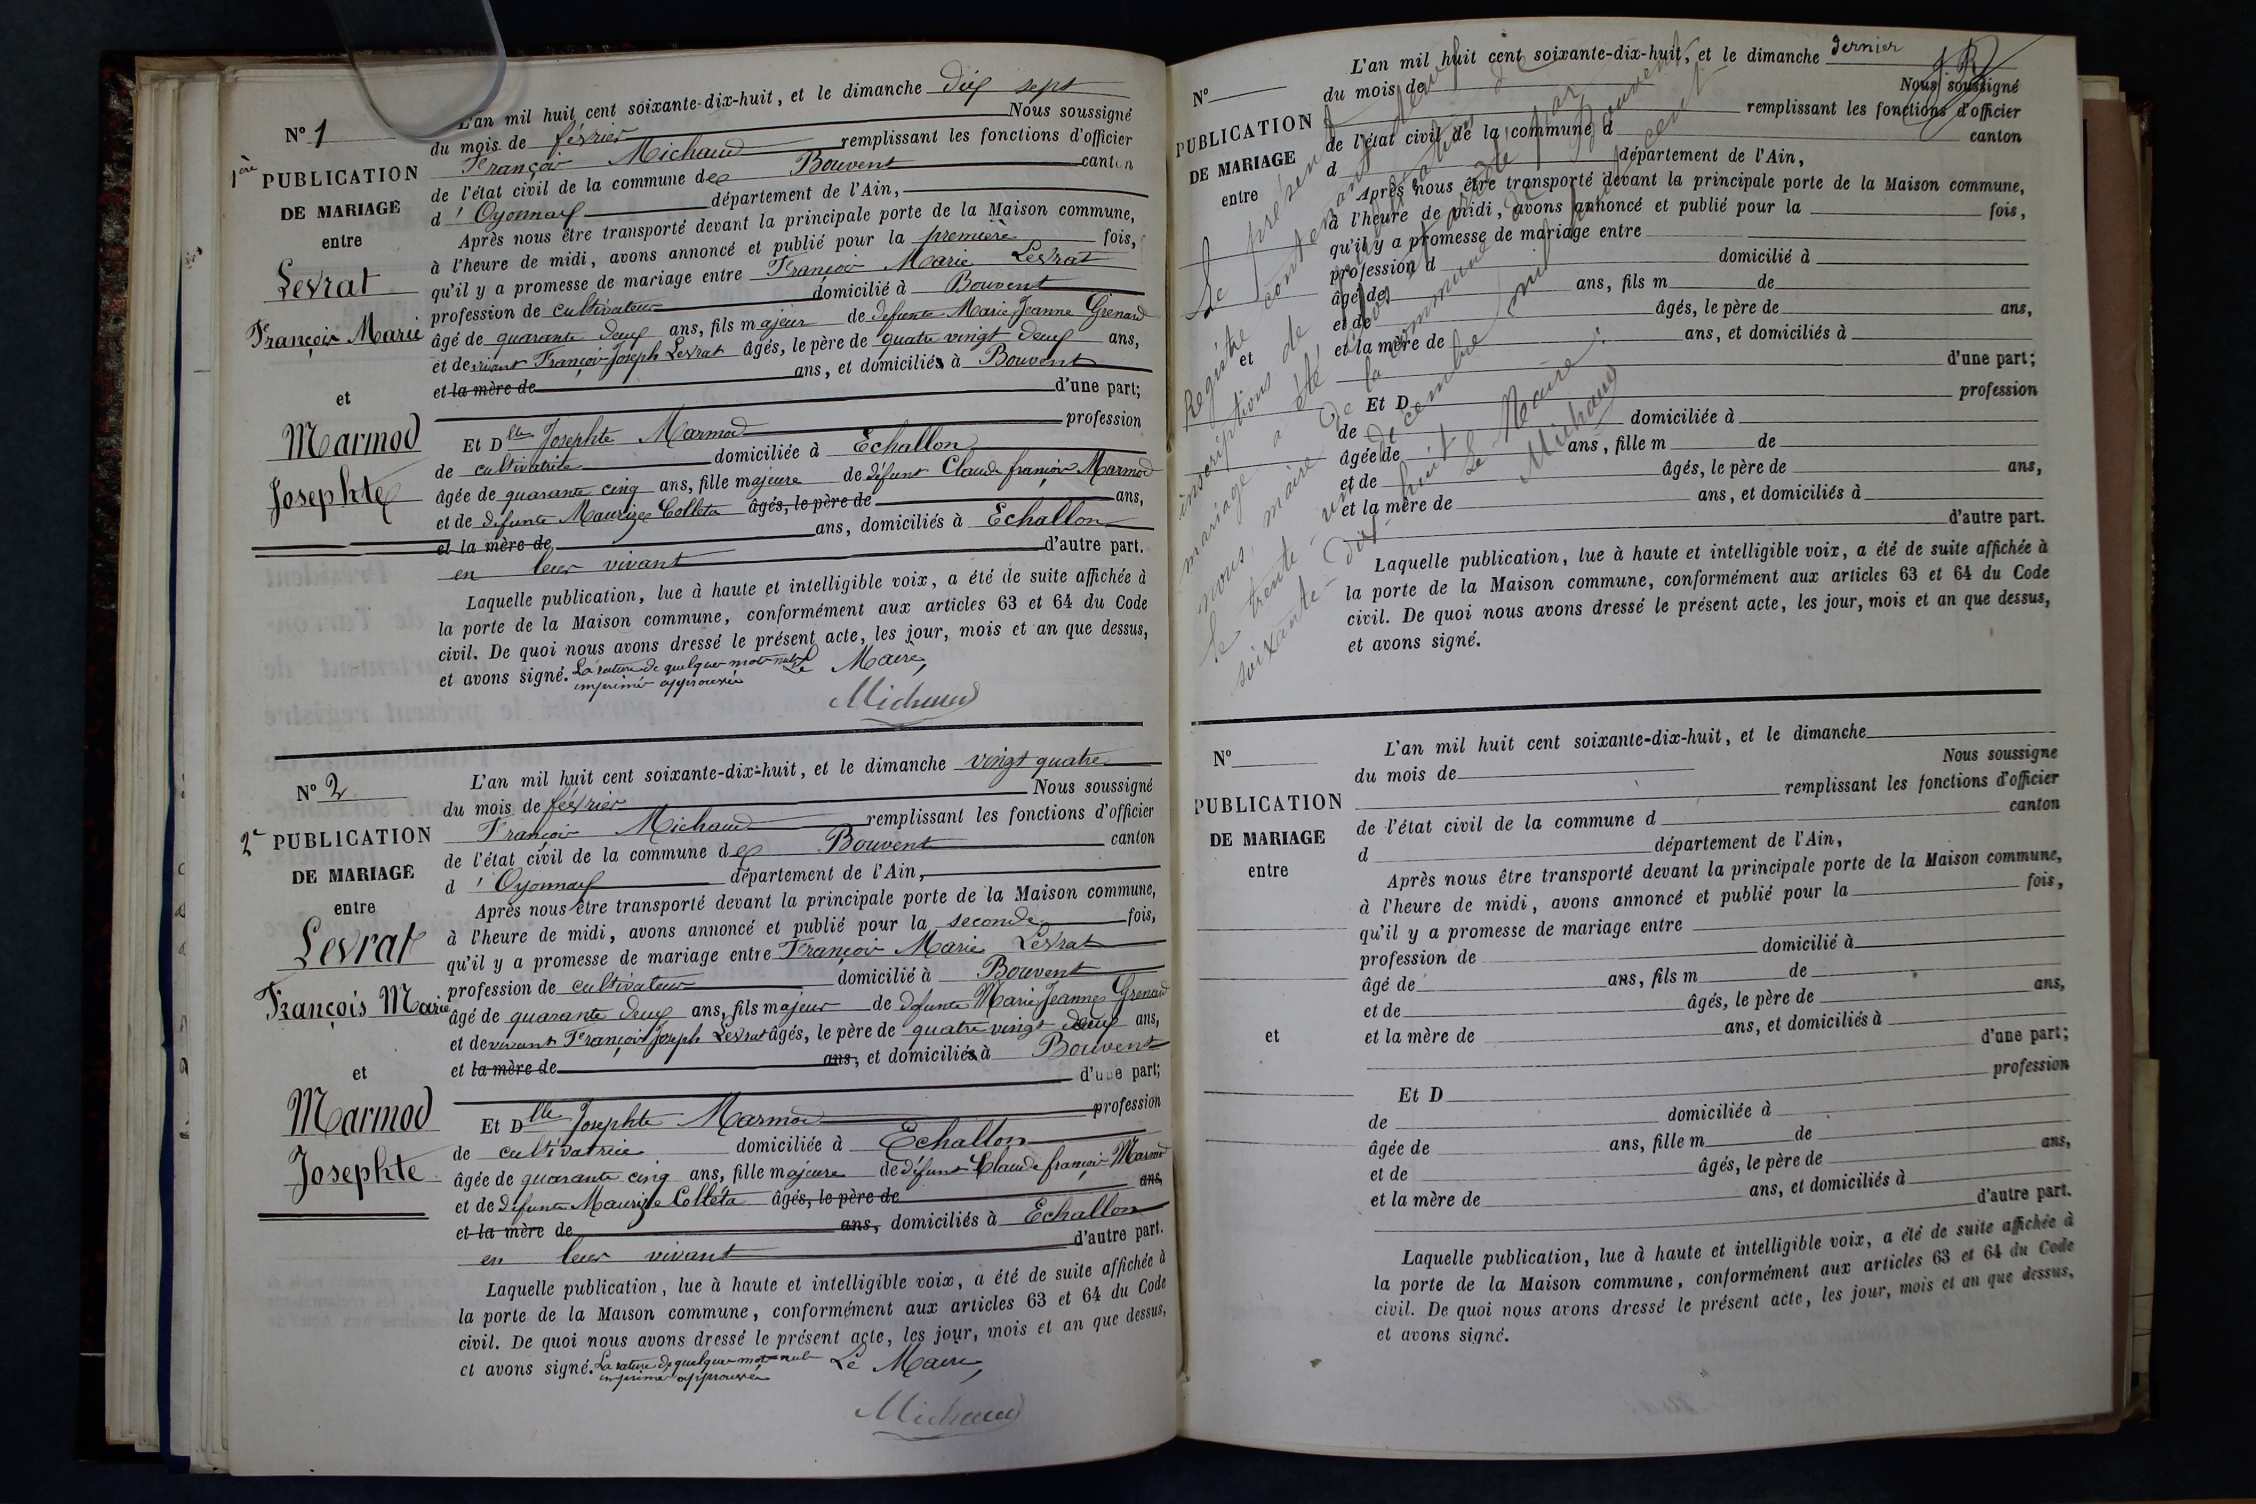 N° 1
1ère PUBLICATION
DE MARIAGE
entre
Levrat
François Marie
et
Marmod
Josephte
L'an mil huit cent soixante-dix-huit, et le dimanche dix sept
du mois de février Nous soussigné
François Michaud remplissant les fonctions d'officier
de l'état civil de la commune de Bouvent canton
d'Oyonnax département de l'Ain,
Après nous être transporté devant la principale porte de la Maison commune,
à l'heure de midi, avons annoncé et publié pour la première fois,
qu'il y a promesse de mariage entre François Marie Levrat
profession de cultivateur domicilié à Bouvent
âgé de quarante deux ans, fils majeur de defunte Marie Jeanne Grenard
et de vivant François Joseph Levrat âgés, le père de quatre vingt deux ans,
et la mère de ans, et domiciliés à Bouvent
d'une part;
Et Dlle Josephte Marmod profession
de cultivatrice domiciliée à Echallon
âgée de quarante cinq ans, fille majeure de défunt Claude françois Marmod
et de défunte Maurize Colleta âgés, le père de ans,
et la mère de ans, domiciliés à Echallon
en leur vivant d'autre part.
Laquelle publication, lue à haute et intelligible voix, a été de suite affichée à
la porte de la Maison commune, conformément aux articles 63 et 64 du Code
civil. De quoi nous avons dressé le présent acte, les jour, mois et an que dessus,
et avons signé. La rature de quelques mots nuls Le Maire,
imprimés approuvée
Michaud
N° 2
2e PUBLICATION
DE MARIAGE
entre
Levrat
François Marie
et
Marmod
Josephte
L'an mil huit cent soixante-dix-huit, et le dimanche vingt quatre
du mois de février Nous soussigné
François Michaud remplissant les fonctions d'officier
de l'état civil de la commune de Bouvent canton
d'Oyonnax département de l'Ain,
Après nous être transporté devant la principale porte de la Maison commune,
à l'heure de midi, avons annoncé et publié pour la seconde fois,
qu'il y a promesse de mariage entre François Marie Levrat
profession de cultivateur domicilié à Bouvent
âgé de quarante deux ans, fils majeur de défunte Marie Jeanne Grenard
et de vivant François Joseph Levrat âgés, le père de quatre vingt deux ans,
et la mère de ans, et domiciliés à Bouvent
d'une part;
Et Dlle Josephte Marmod profession
de cultivatrice domiciliée à Echallon
âgée de quarante cinq ans, fille majeure de défunt Claude françois Marmod
et de défunte Maurize Colléta âgés, le père de ans,
et la mère de ans, domiciliés à Echallon
en leur vivant d'autre part.
Laquelle publication, lue à haute et intelligible voix, a été de suite affichée à
la porte de la Maison commune, conformément aux articles 63 et 64 du Code
civil. De quoi nous avons dressé le présent acte, les jour, mois et an que dessus,
et avons signé. La rature de quelques mots nuls Le Maire,
imprimés approuvée
Michaud
N°
PUBLICATION
DE MARIAGE
entre
et
L'an mil huit cent soixante-dix-huit, et le dimanche dernier
du mois de Nous soussigné
remplissant les fonctions d'officier
de l'état civil de la commune d canton
d département de l'Ain,
Après nous être transporté devant la principale porte de la Maison commune,
à l'heure de midi, avons annoncé et publié pour la fois,
qu'il y a promesse de mariage entre
profession d domicilié à
âgé de ans, fils m de
et de âgés, le père de ans,
et la mère de ans, et domiciliés à
d'une part;
Et D profession
de domiciliée à
âgée de ans, fille m de
et de âgés, le père de ans,
et la mère de ans, et domiciliés à
d'autre part.
Laquelle publication, lue à haute et intelligible voix, a été de suite affichée à
la porte de la Maison commune, conformément aux articles 63 et 64 du Code
civil. De quoi nous avons dressé le présent acte, les jour, mois et an que dessus,
et avons signé.
Le présent
Registre contenant deux
inscriptions de publication de
mariage a été clos et arrêté par
nous, maire de la commune de Bouvent
le trente-un décembre mil huit cent
soixante-dix-huit
Le Maire.
Michaud
N°
PUBLICATION
DE MARIAGE
entre
et
L'an mil huit cent soixante-dix-huit, et le dimanche
du mois de Nous soussigné
remplissant les fonctions d'officier
de l'état civil de la commune d canton
d département de l'Ain,
Après nous être transporté devant la principale porte de la Maison commune,
à l'heure de midi, avons annoncé et publié pour la fois,
qu'il y a promesse de mariage entre
profession de domicilié à
âgé de ans, fils m de
et de âgés, le père de ans,
et la mère de ans, et domiciliés à
d'une part;
Et D profession
de domiciliée à
âgée de ans, fille m de
et de âgés, le père de ans,
et la mère de ans, et domiciliés à
d'autre part.
Laquelle publication, lue à haute et intelligible voix, a été de suite affichée à
la porte de la Maison commune, conformément aux articles 63 et 64 du Code
civil. De quoi nous avons dressé le présent acte, les jour, mois et an que dessus,
et avons signé.